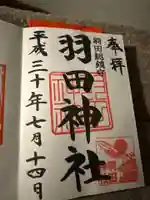 奉拝
羽田総鎮守
羽田神社
平成三十年七月十四日